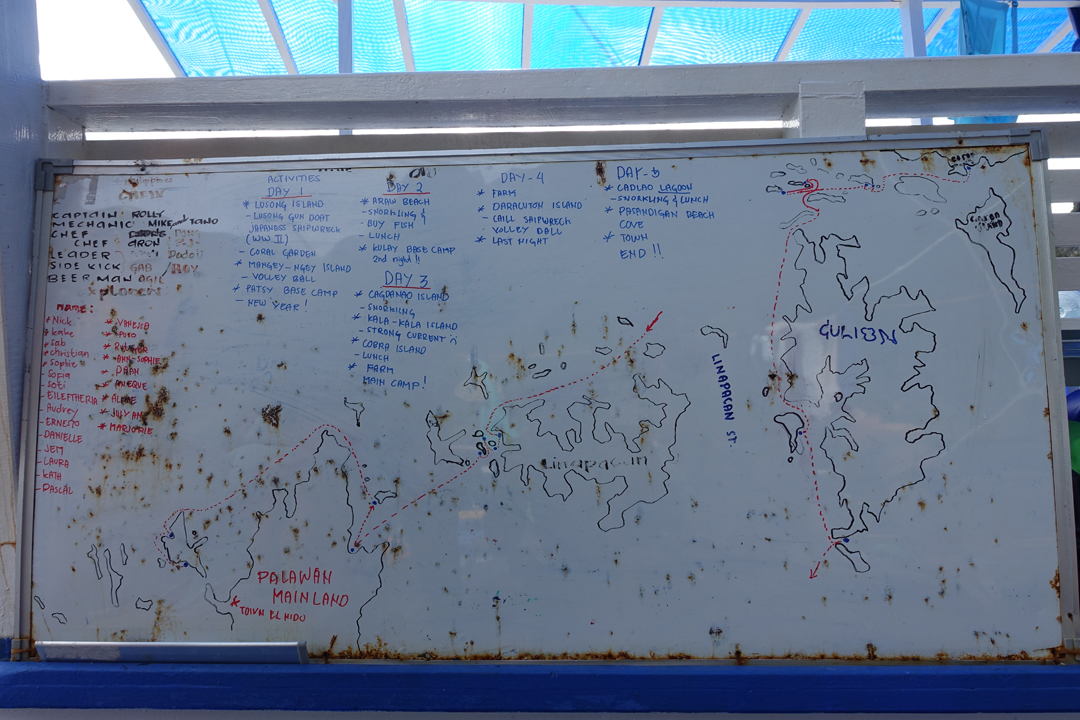 CAPTAIN: ROLLY
MECHANIC: MIKE and TONO
CHEF
CHEF ARON
LEADER
SIDE KICK GAB
BEER MAN AGIL
NAME:
* Nick
* Kaine
* Sab
* christian
* Sophie
- Sofia
- Soti
- EILEFTHERIA
- Audrey
- ERNESTO
- DANIELLE
- JEM
- LAURA
- KATH
- PASCAL
* VANESSA
* ANN-SOPHIE
* DAAN
* ANIEQUE
* ALINE
* JULYANN
* MARJORIE
ACTIVITIES
DAY 1
* LUSONG ISLAND
- LUSONG GUN BOAT
JAPANESS SHIPWRECK
(WW II)
- CORAL GARDEN
* MANGEY-NGEY ISLAND
- VOLLEY BALL
* PATSY BASE CAMP
- NEW YEAR!
DAY 2
* ARAW BEACH
- SNORKLING &
BUY FISH
- LUNCH
* KULAY BASE CAMP
2nd night!!
DAY 3
* CAGDANAO ISLAND
- SNORKLING
* KALA-KALA ISLAND
- STRONG CURRENT
* COBRA ISLAND
- LUNCH
* FARM
MAIN CAMP!
DAY-4
* FARM
* DARACUTON ISLAND
- CAILL SHIPWRECK
- VOLLEY BALL
* LAST NIGHT
DAY-5
* CADLAO LAGOON
- SNORKLING & LUNCH
* PASANDIGAN BEACH
COVE
* TOWN
END!!
CULION
LINAPACAN ST.
Linapacan
PALAWAN
MAINLAND
* TOWN EL NIDO